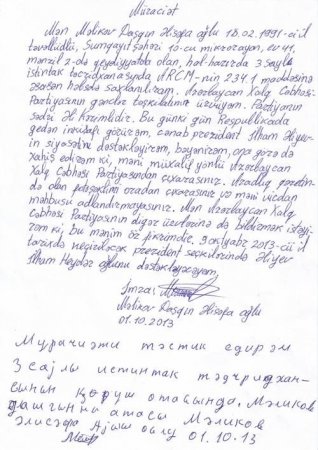 Müraciət
Mən Məlikov Daşqın Əlisəfa oğlu 18.02.1991-ci il
təvəllüdlü, Sumqayıt şəhəri 10-cu mikrorayon, ev 41,
mənzil 2-də qeydiyyatda olan, hal-hazırda 3 saylı
istintaq təcridxanasında ARCM-nin 234.1 maddəsinə
əsasən həbsdə saxlanılıram. Azərbaycan Xalq Cəbhəsi
Partiyasının gənclər təşkilatının üzvüyəm. Partiyanın
sədri Əli Kərimlidir. Bu günki gün Respublikada
gedən inkişafı görürəm, cənab prezident İlham Əliyev-
in siyasətini dəstəkləyirəm, bəyənirəm, ona görə də
xahiş edirəm ki, məni müxalif yönlü Azərbaycan
Xalq Cəbhəsi Partiyasından çıxarasınız. Azadlıq qəzetin-
də olan adımı oradan çıxarasınız və məni vicdan
məhbusu adlandırmayasınız. Mən Azərbaycan Xalq
Cəbhəsi Partiyasının digər üzvlərinə də bildirmək istəyi-
rəm ki, bu mənim öz fikrimdir. 9 oktyabr 2013-cü il
tarixdə keçiriləcək prezident seçkilərində Əliyev
İlham Heydər oğlunu dəstəkləyəcəyəm.
İmza:
Məlikov Daşqın Əlisəfa oğlu
01.10.2013
Мурачиәти тәстиг едирәм
3 сајлы истинтаг тәдчридхан-
сынын көрүш отағында. Мәликов
Дашгынын атасы Мәликов
Әлисәфа оғлу 01.10.13